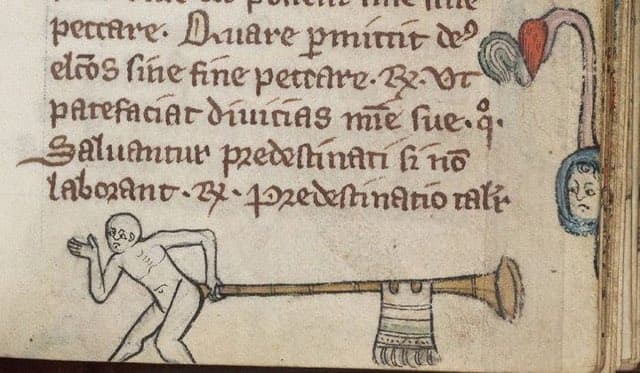 peccare. Quare ꝑmittit deꝰ
elc̄os sine fine peccare. ℞. Ut
patefaciat diuicias mīe sue. qͦ.
Saluantur predestinati si nō
laborant. ℞. Predestinatio talr̄